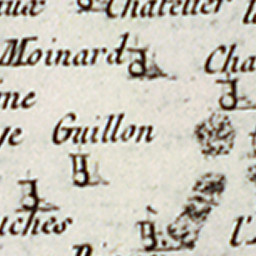 aux Chatelier l
Moinard Cha
ine
ye Guillon
uches l'